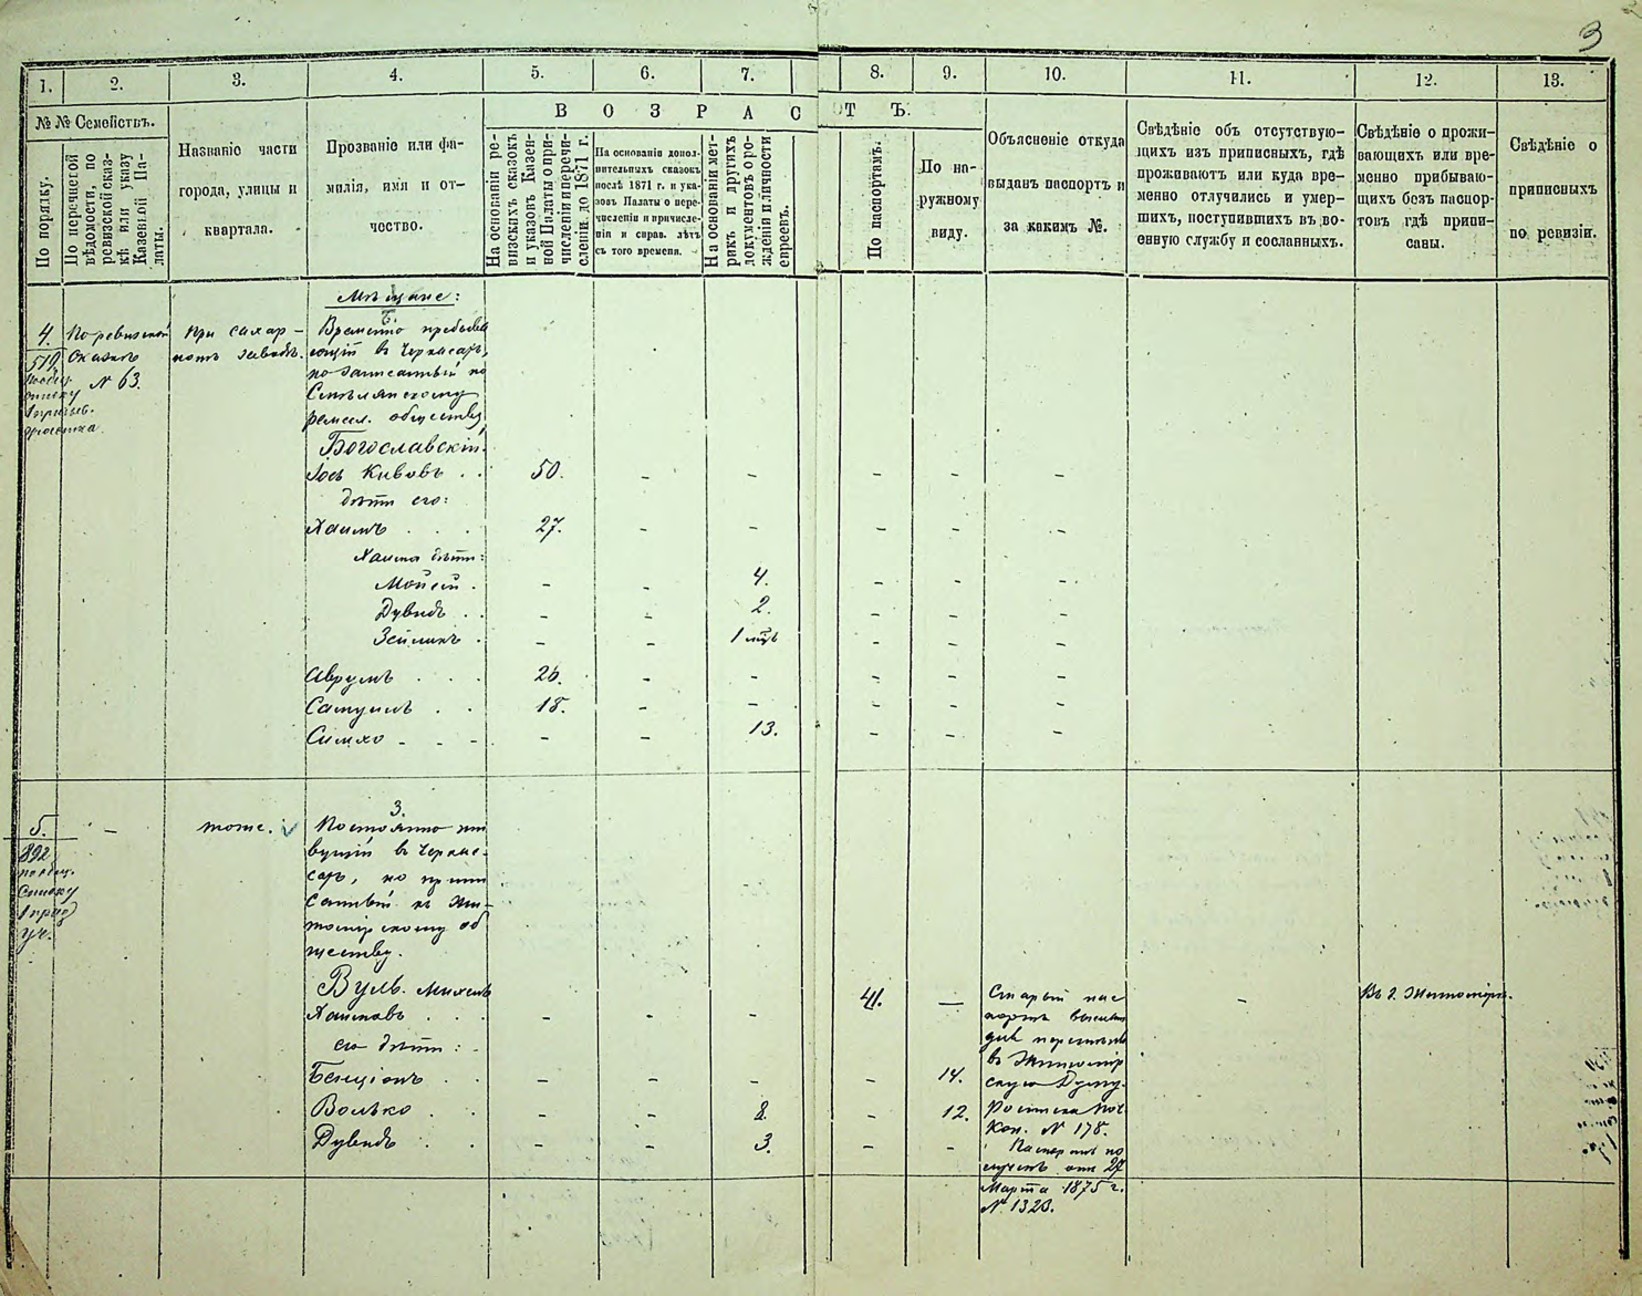 3
1.
2.
3.
4.
5.
6.
7.
8.
9.
10.
11.
12.
13.
№ № Семействъ.
По порядку.
По перечневой
вѣдомости, по
ревизской сказ-
кѣ или указу
Казенной Па-
латы.
Названіе части
города, улицы и
квартала.
Прозваніе или фа-
милія, имя и от-
чество.
В О З Р А С Т Ъ.
На основаніи ре-
визскихъ сказокъ
и указовъ Казен-
ной Палаты о при-
численіи и перечи-
сленіи до 1871 г.
На основаніи допол-
нительныхъ сказокъ
послѣ 1871 г. и ука-
зовъ Палаты о пере-
численіи и причисле-
ніи и справ. лѣтъ
съ того времени.
На основаніи мет-
рикъ и другихъ
документовъ о ро-
жденіи и личности
евреевъ.
По паспортамъ.
По на-
ружному
виду.
Объясненіе откуда
выданъ паспортъ и
за какимъ №.
Свѣдѣніе объ отсутствую-
щихъ изъ приписныхъ, гдѣ
проживаютъ или куда вре-
менно отлучились и умер-
шихъ, поступившихъ въ во-
енную службу и сосланныхъ.
Свѣдѣніе о прожи-
вающихъ или вре-
менно прибываю-
щихъ безъ паспор-
товъ гдѣ припи-
саны.
Свѣдѣніе о
приписныхъ
по ревизіи.
Мѣщане:
4.
519
По ревизской
сказкѣ
№ 63.
При сахар-
номъ заводѣ.
Временно пребыва
ющій въ Черкасахъ,
но записанный по
Смѣлянскому
ремесл. обществу
Богославскій
Іось Кивовъ . . 50. - - - - -
дѣти его:
Хаимъ . . . 27. - - - - -
Хаима дѣти:
Мойсей . - - 4. - - -
Дувидъ . . - - 2. - - -
Зейликъ . - - 1 мѣс - - -
Аврумъ . . . 26. - - - - -
Самуилъ . . 18. - - - - -
Симхо - - - - - 13. - - -
5.
892
по общ.
списку
-
тоже.
3.
Постоянно жи
вущій въ Черка-
сахъ, но припи
санный къ Жи-
томірскому об
ществу.
Вуль. Михель
Хаимовъ . . . - - - 41. —
его дѣти:
Бенціонъ . . - - - - 14.
Волько . . - - 8. - 12.
Дувидъ . . - - 3. - -
Старый пас
портъ
в Житомір
скую Думу.
№ 178.
Паспортъ по
отъ 27
Марта 1875 г.
№ 1328.
-
Въ г. Житомірѣ.